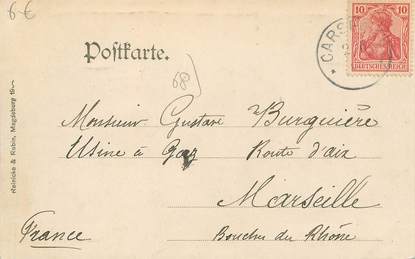 6-€
10 10
DEUTSCHES REICH
CARS
Postkarte.
Monsieur Gustave Burguière
Usine à Gaz Route d'aix
Marseille
France Bouches du Rhône
Reinicke & Rubin, Magdeburg